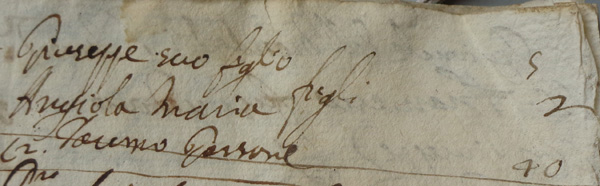 Giuseppe suo figlio 5
Angiola Maria figli 2
Giacomo Perrone 40